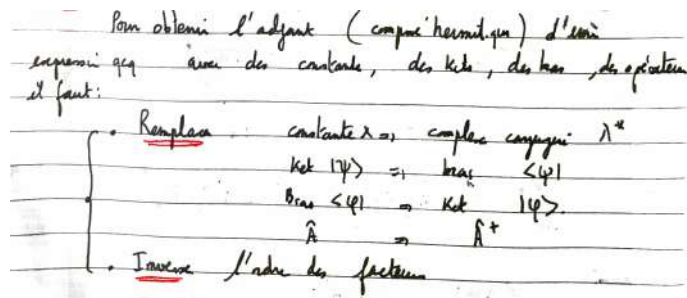 Pour obtenir l'adjoint (conjugué hermitique) d'une
expression qcq avec des constantes, des kets, des bras, des opérateurs
il faut:
• Remplacer constante λ ⇒ complexe conjugué λ*
Ket |ψ> ⇒ bras <ψ|
Bras <φ| ⇒ Ket |φ>.
Â ⇒ Â+
• Inverse l'ordre des facteurs